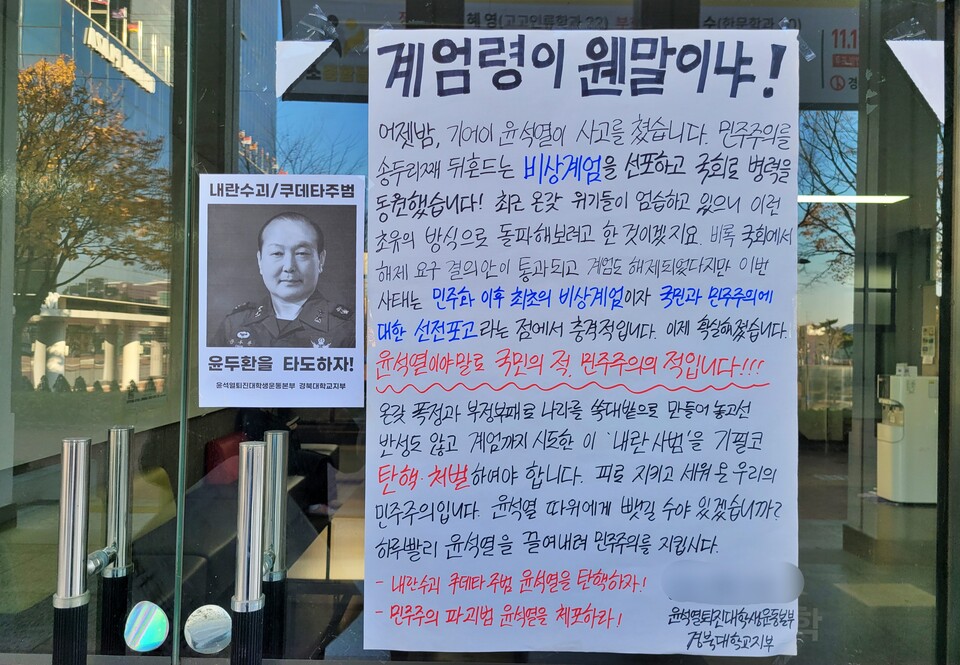 혜영(고고인류학과 22)
수(한문학과 20)
11.1
내란수괴/쿠데타주범
윤두환을 타도하자!
윤석열퇴진대학생운동본부 경북대학교지부
계엄령이 웬말이냐!
어젯밤, 기어이 윤석열이 사고를 쳤습니다. 민주주의를
송두리째 뒤흔드는 비상계엄을 선포하고 국회로 병력을
동원했습니다! 최근 온갖 위기들이 엄습하고 있으니 이런
초유의 방식으로 돌파해보려고 한 것이겠지요. 비록 국회에서
해제 요구 결의안이 통과되고 계엄도 해제되었다지만 이번
사태는 민주화 이후 최초의 비상계엄이자 국민과 민주주의에
대한 선전포고라는 점에서 충격적입니다. 이제 확실해졌습니다.
윤석열이야말로 국민의 적, 민주주의의 적입니다!!!
온갖 폭정과 부정부패로 나라를 쑥대밭으로 만들어 놓고선
반성도 않고 계엄까지 시도한 이 '내란 사범'을 기필코
탄핵·처벌하여야 합니다. 피로 지키고 세워온 우리의
민주주의입니다. 윤석열 따위에게 뺏길 수야 있겠습니까?
하루빨리 윤석열을 끌어내려 민주주의를 지킵시다.
- 내란수괴 쿠데타 주범 윤석열을 탄핵하자!
- 민주주의 파괴범 윤석열을 체포하라!
윤석열퇴진대학생운동본부
경북대학교지부